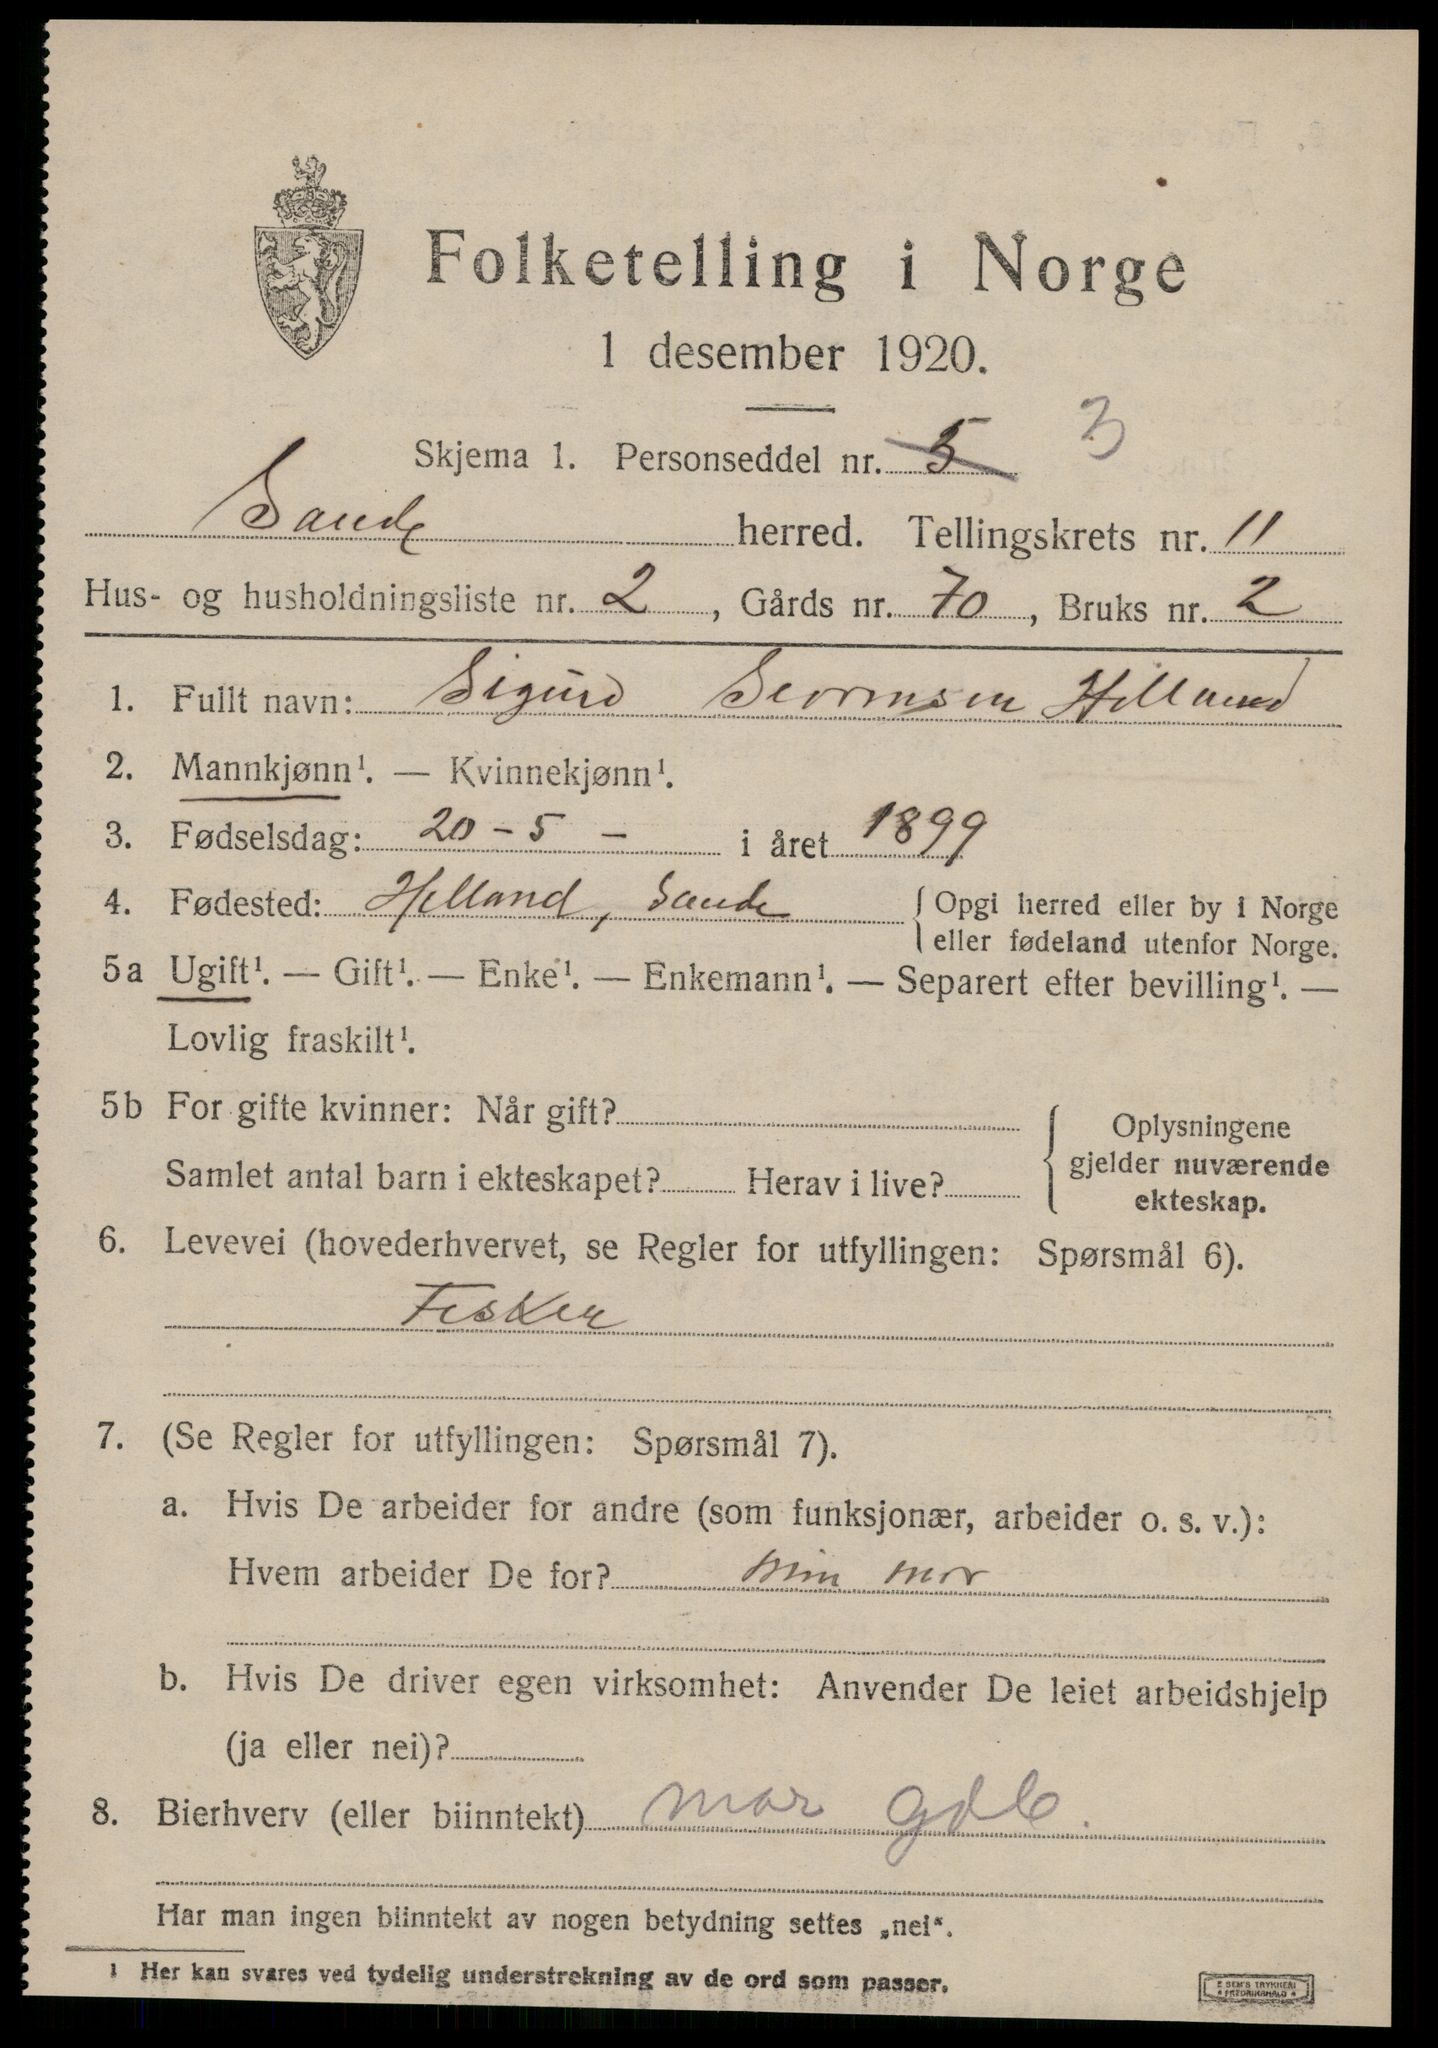 Folketelling i Norge
1 desember 1920.
Skjema 1. Personseddel nr. 5 3
Sande herred. Tellingskrets nr. 11
Hus- og husholdningsliste nr. 2, Gårds nr. 70, Bruks nr. 2
1. Fullt navn: Sigurd Severinsen Helland
2. Mannkjønn¹. — Kvinnekjønn¹.
3. Fødselsdag: 20 - 5 - i året 1899
4. Fødested: Helland, Sande { Opgi herred eller by i Norge
eller fødeland utenfor Norge.
5a Ugift¹. — Gift¹. — Enke¹. — Enkemann¹. — Separert efter bevilling¹. —
Lovlig fraskilt¹.
5b For gifte kvinner: Når gift?
Samlet antal barn i ekteskapet? Herav i live?
Oplysningene
gjelder nuværende
ekteskap.
6. Levevei (hovederhvervet, se Regler for utfyllingen: Spørsmål 6).
Fisker
7. (Se Regler for utfyllingen: Spørsmål 7).
a. Hvis De arbeider for andre (som funksjonær, arbeider o. s. v.):
Hvem arbeider De for? min mor
b. Hvis De driver egen virksomhet: Anvender De leiet arbeidshjelp
(ja eller nei)?
8. Bierhverv (eller biinntekt) mor
Har man ingen biinntekt av nogen betydning settes „nei“.
1 Her kan svares ved tydelig understrekning av de ord som passer.
E SEM'S TRYKKERI
FREDRIKSHALD